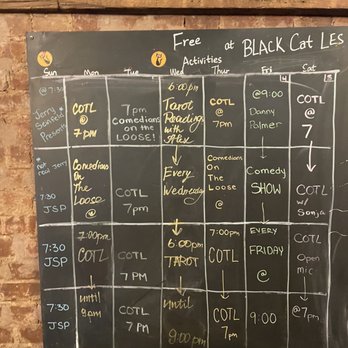 Free at BLACK Cat LES
Activities
Sun Mon Tue Wed Thur Fri Sat
@ 7:30
Jerry
Seinfeld
Presents
COTL
@
7pm
7pm
Comedians
on the
LOOSE!
6:00pm
Tarot
Readings
with
COTL
@
7pm
@9:00
Danny
Palmer
COTL
@
7
* not
real Jerry
7:30
JSP
Comedians
On
The
Loose
@
COTL
7pm
Every
Wednesday
Comedians
On The
Loose
@
Comedy
SHOW
COTL
w/
Sonja
7:30
JSP
7:00pm
COTL
COTL
7PM
6:00pm
TAROT
7:00pm
COTL
EVERY
FRIDAY
@
COTL
Open
mic
7:30
JSP
until
9pm
COTL
7pm
until
9:00pm
COTL
7pm
9:00
@7pm